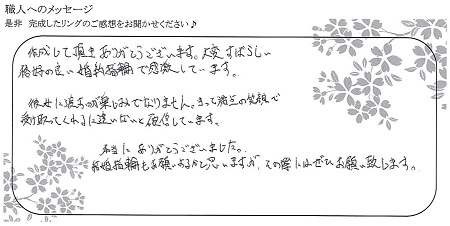 職人へのメッセージ
是非 完成したリングのご感想をお聞かせください♪
作成して頂きありがとうございます。大変すばらしい
格好の良い婚約指輪で感激しています。
彼女に渡すのが楽しみでなりません。きっと満点の笑顔で
受取ってくれるに違いないと確信しています。
本当にありがとうございました。
結婚指輪もお願いするかと思いますが、その際にはぜひお願い致します。